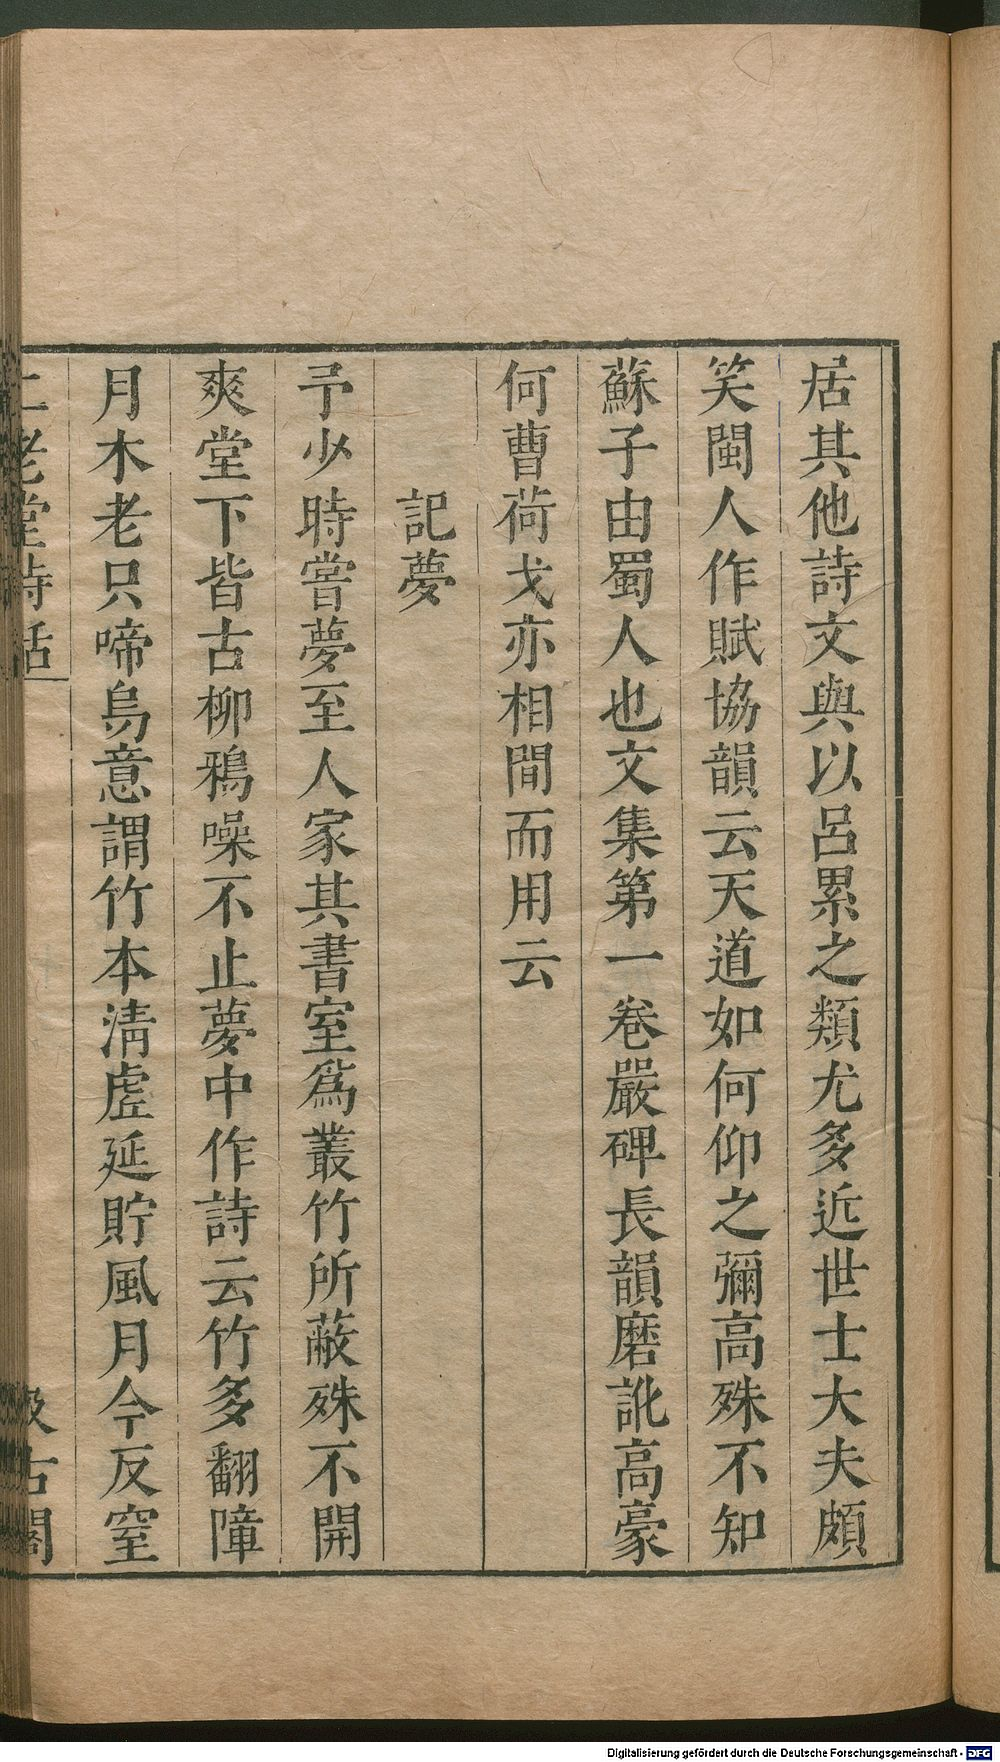 居其他詩文與以呂累之類尤多近世士大夫頗
笑閩人作賦協韻云天道如何仰之彌高殊不知
蘇子由蜀人也文集第一卷嚴碑長韻磨訛高豪
何曹荷戈亦相間而用云
記夢
予少時嘗夢至人家其書室爲叢竹所蔽殊不開
爽堂下皆古柳鴉噪不止夢中作詩云竹多翻障
月木老只啼烏意謂竹本清虛延貯風月今反窒
二老堂詩話
汲古閣
Digitalisierung gefördert durch die Deutsche Forschungsgemeinschaft - DFG